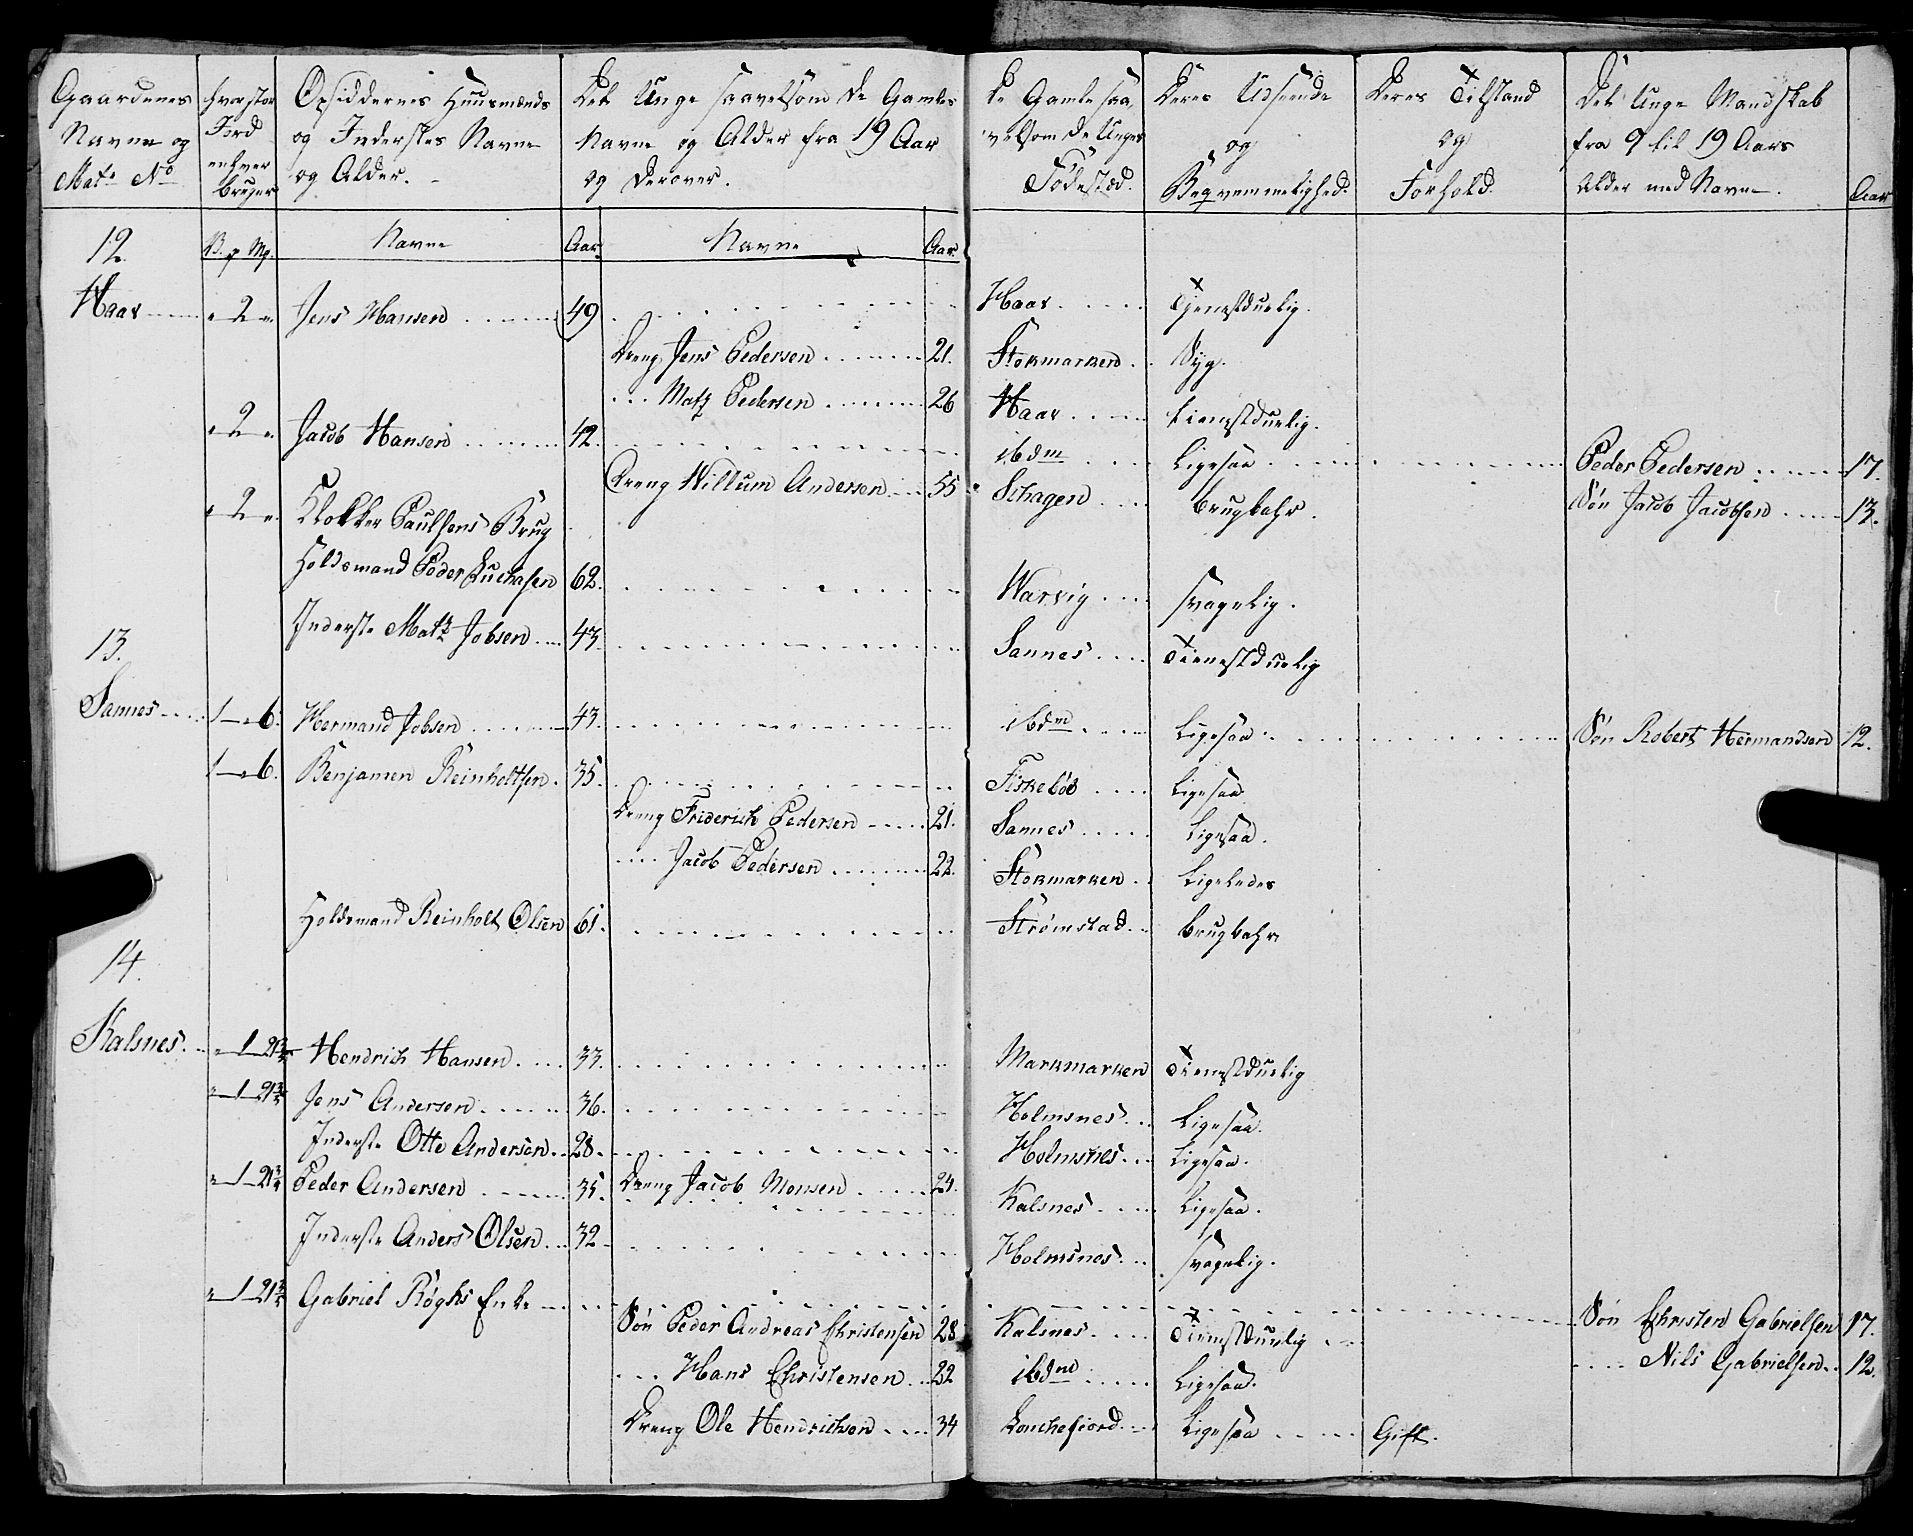 Gaardenes Navne og Mats No
hvor stor Jord enhver bruger
Opsiddernes Huusmænds og Inderstes Navne og Alder.
Det Unge saavelsom de Gamles Navne og Alder fra 19 Aar og derover.
De Gamle saavelsom de Unges Fødestæd.
Deres Udseende og Beqvemmelighed.
Deres Tilstand og Forhold
Det Unge Mandskab fra 9 til 19 Aars Alder med Navne.
Aar
B. p Mg. Navne Aar Navne Aar
12.
Haar 2 Jens Hansen 49 Haar Tjenestduelig.
Dreng Jens Pedersen 21. Stokmarken Syg.
Matz Pedersen 26 Haar tienestduelig.
2 Jacob Hansen 42. ibdm Ligesaa Peder Pedersen 17.
Dreng Willum Andersen 55 Schagen brugbahr. Søn Jacob Jacobsen 13.
2 Klokker Paulsens Brug
Holdsmand Peder Luchasen 62. Warvig svagelig.
Inderste Matz Jobsen 43. Sannes Tienestduelig
13.
Sannes 1 6. Hermand Jobsen 43. ibdm Ligesaa Søn Robert Hermandsen 12.
1 6. Benjamen Reinholtsen. 35. Fiskebøe Ligesaa
Dreng Friderich Pedersen 21. Sannes Ligesaa.
Jacob Pedersen 22. Stokmarken Ligeledes
Holdsmand Reinholt Olsen 61. Strømstad brugbahr
14.
Kalsnes. 1 21 3/4 Hendrich Hansen 33. Markmarken Tienestduelig
1 21 3/4 Jens Andersen 36. Holmsnes Ligesaa.
Inderste Otte Andersen 28. Holmsnes Ligesaa.
1 21 3/4 Peder Andersen 35. Dreng Jacob Monsen 24. Kalsnes Ligesaa.
Inderste Anders Olsen 32 Holmsnes svagelig.
1 21 3/4 Gabriel Røghs Enke
Søn Peder Andreas Christensen 28 Kalsnes Tienestduelig Søn Christen Gabrielsen 17.
Hans Christensen 22 ibdm Ligesaa. Nils Gabrielsen 12.
Dreng Ole Hendrichsen 34 Ligesaa Gift.